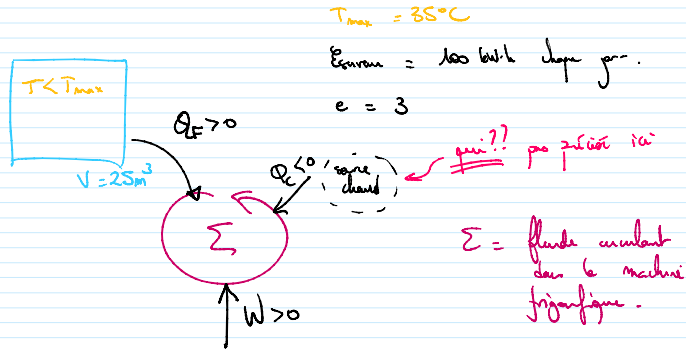 Tmax = 35°C
Eserveurs = 100 kWh chaque jour.
e = 3
T < Tmax
V = 25m³
QF > 0
Qc < 0
source chaude
qui?? pas précisé ici
Σ
W > 0
Σ = fluide circulant
dans la machine
frigorifique.